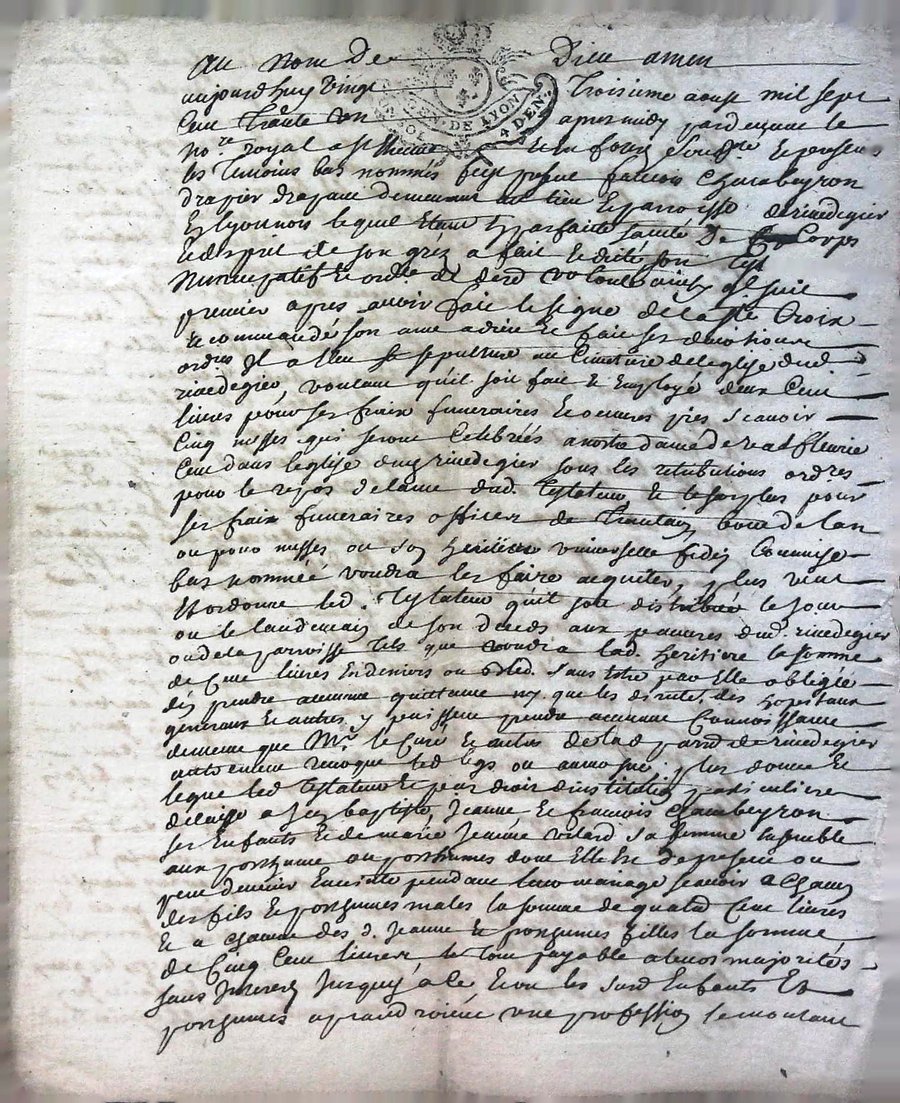 Au nom de Dieu amen
aujourdhuy vingt Troisieme aoust mil sept
Cent Trante un apres midy pardevant le
GEN. DE LYON
SOL 4 DEN.
no.re royal a St en forez sousig.né Et presens
les Temoins bas nommés feut present francois Chambeyron
drapier drapant demeurant au lieu Et parroisse de rivedegier
En lyonnois lequel Etant En parfaite santé De Corps
Et desprit de son gréz a fait Et dicté son Test
Nuncupatif Et ord.re de dern volonté ainsy q.l suit
premier apres avoir fait le signe de la ste Croix
recommandé son ame a dieu Et fait ses devotions
ord.res Il a Eleu sa sepulture au Cimetiere de leglise dud.
rivedegier, voulant qu'il soit fait Et Employé deux Cent
livres pour ses fraix funeraires Et oeuvres pies scavoir
Cinq messes qui seront Celebrées a notre dame de
Cent dans leglise dud rivedegier sous les retributions ord.res
pour le repos de lame dud. Testateur Et le surplus pour
ses fraix funeraires offices de Trantain bout de lan
ou pour messes ou son heritiere universelle fidei Commise
bas nommée voudra les faire acquiter, plus veut
Et ordonne led. Testateur qu'il soit distribué le jour
ou le landemain de son deceds aux pauvres dud. rivedegier
ou de la parroisse Tels que voudra lad. heritiere la somme
de Cent livres En deniers ou bled. sans Estre par Elle obligée
d'en prendre aucune quittance ny que les direct.rs des hopitaux
generaux Et autres y puissent prendre aucune Connoissance
de meme que Mr. le Curé Et autres de lad parr.sse de rivedegier
autrement revoque led legs ou aumosne; plus donne Et
legue led Testateur Et par droit d'institution particuliere
delaisse a Jean baptiste, Jeanne Et francois Chambeyron
ses Enfants Et de marie Jeanne vilard sa femme Ensemble
aux posthume ou posthumes dont Elle Est de present ou
peut devenir Enceinte pendant leur mariage scavoir a Chacun
des fils Et posthumes males la somme de quatre Cent livres
Et a Chacune des d. Jeanne Et posthumes filles la somme
de Cinq Cent livres le Tout payable a leurs majorités
sans Interest Jusques a ce Et ou les susd Enfants Et
posthumes aprandroient une profession le montant